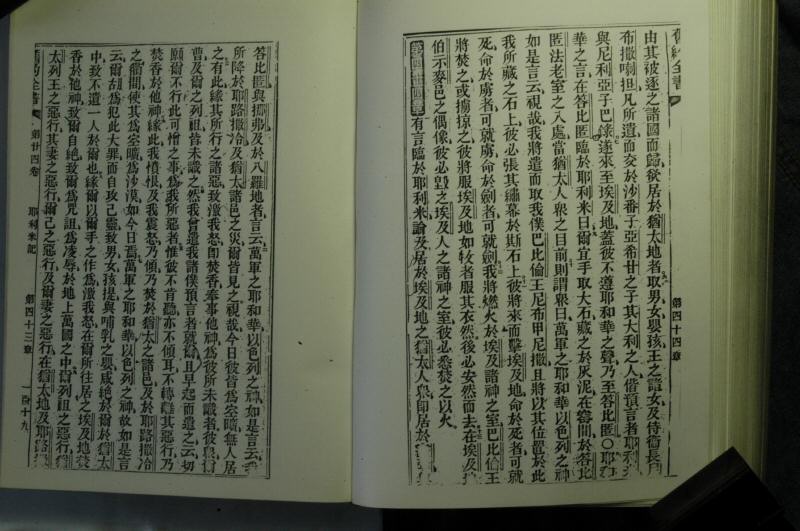 舊約全書
第四十四章
由其被逐之諸國而歸欲居於猶太地者取男女嬰孩王之諸女及侍衛長
布撒喇担凡所遺而交於沙番子亞希甘之子其大利之人偕預言者耶利
與尼利亞子巴錄遂來至埃及地蓋彼不遵耶和華之聲乃至答比匿〇耶
華之言在答比匿臨於耶利米曰爾宜手取大石藏之於灰泥在磚間於答比
匿法老室之入處當猶太人眾之目前則謂眾曰萬軍之耶和華以色列之神
如是言云視哉我將遣而取我僕巴比倫王尼布甲尼撒且將以其位置於此
我所藏之石上彼必張其繡幕於斯石上彼將來而擊埃及地命於死者可就
死命於虜者可就虜命於劍者可就劍我將燃火於埃及諸神之室巴比倫王
將焚之或擄掠之彼將服埃及地如牧者服其衣然後必安然而去在埃及
伯示麥邑之偶像彼必毀之埃及人之諸神之室彼必悉焚之以火
第四十四章有言臨於耶利米論及居於埃及地之猶太人眾卽居於
答比匿與挪弗及於八羅地者言云萬軍之耶和華以色列之神如是言云
所降於耶路撒冷及猶太諸邑之災爾皆見之視哉今日彼皆爲空曠無人居
之有此緣其所行之諸惡致激我怒卽焚香奉事他神爲彼所未識者彼與
曹及爾之列祖皆未識之然我曾遣我諸僕預言者就爾且早起而遣之云切
願爾不行此可憎之事爲我所惡者惟彼不肯聽亦不傾耳不轉離其惡行乃
焚香於他神緣此我憤恨及我震怒乃傾乃焚於猶太之諸邑及於耶路撒冷
之衢間使其爲空曠爲沙漠如今日焉萬軍之耶和華以色列之神故如是言
云爾曷爲犯此大罪而自攻己靈致男女孩提與哺乳之嬰咸絕於爾於猶太
中致不遺一人於爾也緣爾以爾手之作爲激我怒在爾所往居之埃及地焚
香於他神致爾自絕致爾爲咒詛爲凌辱於地上萬國之中爾列祖之惡行猶
太列王之惡行其妻之惡行爾己之惡行及爾妻之惡行在猶太地及耶路
舊約全書
第廿四卷
耶利米記
第四十三章
一百十九